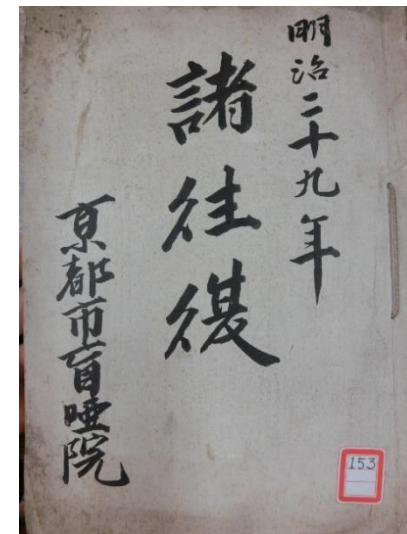 明治二十九年
諸往復
京都市盲唖院
153